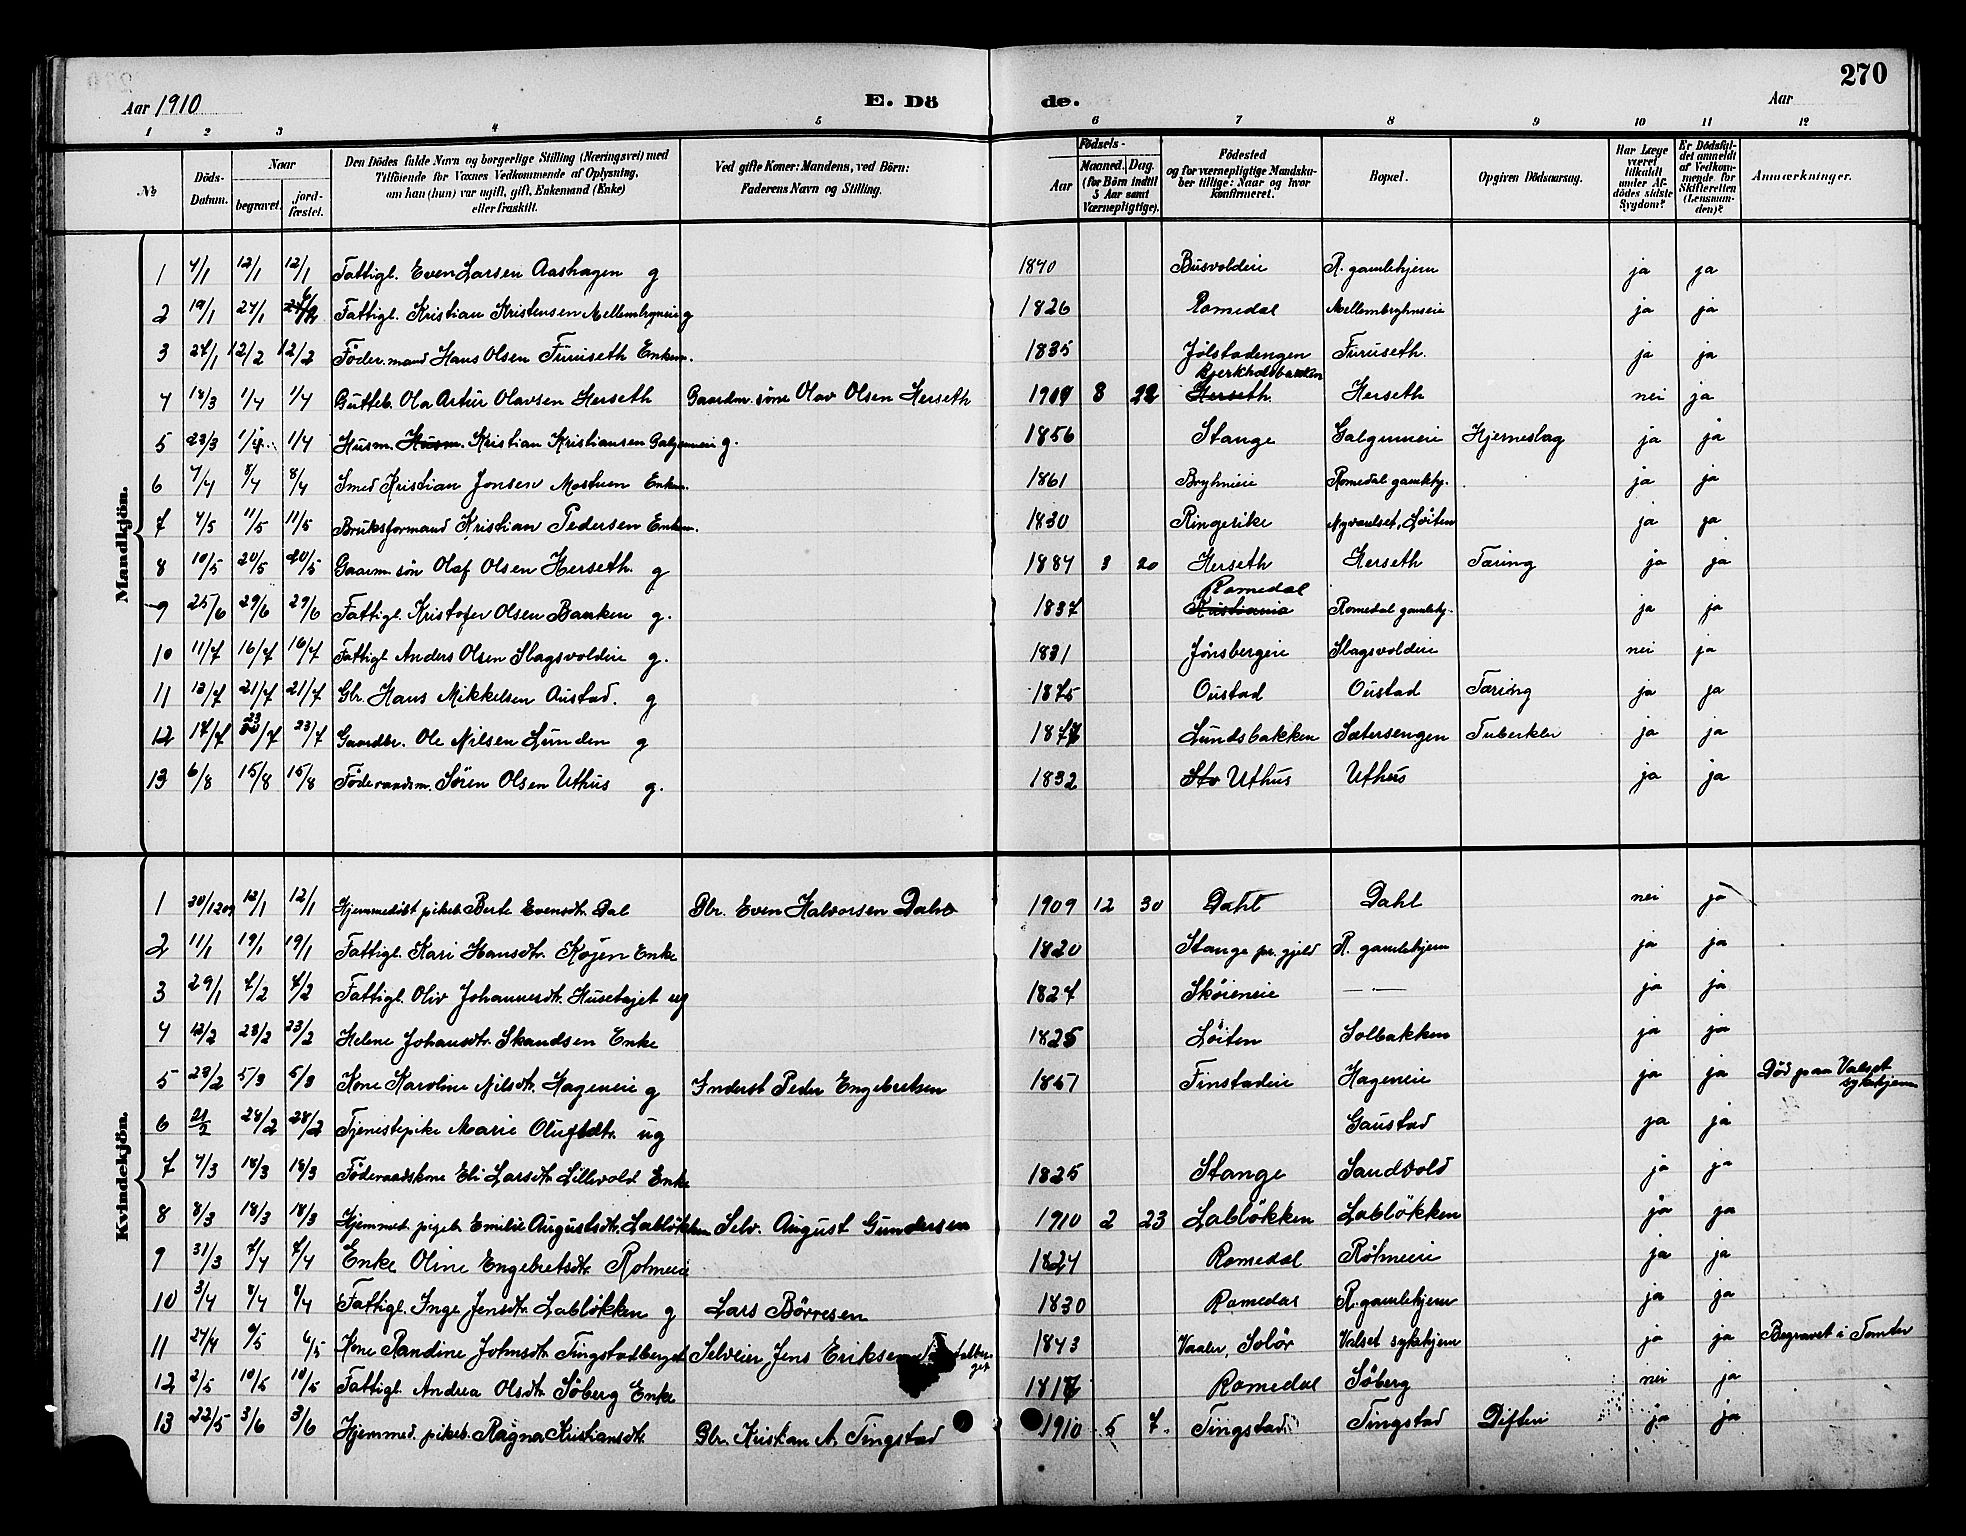 270
Aar 1910 E. Dö de. Aar
1 2 3 4 5 6 7 8 9 10 11 12
№ Döds-Datum. Naar begravet. jord-fæstet. Den Dödes fulde Navn og borgerlige Stilling (Næringsvei) med Tilföiende for Voxnes Vedkommende af Oplysning, om han (hun) var ugift, gift, Enkemand (Enke) eller fraskilt. Ved gifte Koner: Mandens, ved Börn: Faderens Navn og Stilling. Födsels- Aar Maaned. Dag. (for Börn indtil 5 Aar samt Værnepligtige). Födested og for værnepligtige Mandsku-ber tillige: Naar og hvor konfirmeret. Bopæl. Opgiven Dödsaarsag. Har Læge været tilkaldt under Af-dödes sidste Sygdom? Er Dödsfal-det anmeldt af Vedkom-mende for Skifteretten (Lensman-den)? Anmærkninger.
Mandkjön.
1 4/1 12/1 12/1 Fattigl. Even Larsen Aashagen g 1840 Busvoldeie R. gamlehjem ja ja
2 19/1 27/1 6/2 Fattigl. Kristian Kristensen Mellembryneie g 1826 Romedal Mellembryhneie ja ja
3 27/1 12/2 12/2 Föder.mand Hans Olsen Furuseth Enkem. 1835 Jölstadengen Furuseth. ja ja
4 18/3 1/4 1/4 Gutteb. Ola Artur Olavsen Herseth Gaardm. söne Olav Olsen Herseth 1909 8 22 Bjerkholtbakken Herseth. Herseth nei ja
5 23/3 1/4 1/4 Husm. Husm. Kristian Kristiansen Galgumeie g. 1856 Stange Galgumeie Hjerneslag ja ja
6 7/4 8/4 8/4 Smed Kristian Jonsen Mostuen Enkem. 1861 Bryhnieie Romedal gamlehj. ja ja
7 4/5 11/5 11/5 Bruksformand Kristian Pedersen Enkem. 1830 Ringerike Nyvaalset, Löiten ja ja
8 10/5 20/5 20/5 Gaarm. sön Olaf Olsen Herseth. g 1884 3 20 Herseth Herseth Tæring ja ja
9 25/6 29/6 29/6 Fattigl. Kristofer Olsen Bakken g. 1837 Romedal Kristiania Romedal gamlehj. ja ja
10 11/7 16/7 16/7 Fattigl Anders Olsen Slagsvoldeie g. 1831 Jönsbergeie Slagsvoldeie nei ja
11 13/7 21/7 21/7 Gbr. Hans Mikkelsen Austad. g 1875 Oustad Oustad Tæring ja ja
12 17/7 23/7 23/7 Gaardbr. Ole Nilsen Lunden g 1877 Lundsbakken Sætersengen Tuberkler ja ja
13 6/8 15/8 15/8 Föderaadsm. Sören Olsen Uthus g. 1832 Sto Uthus Uthus ja ja
Kvindekjön.
1 30/12 09 12/1 12/1 Hjemmedöbt pikeb. Berte Evensdtr. Dal Gbr. Even Halvorsen Dahl 1909 12 30 Dahl Dahl nei ja
2 11/1 19/1 19/1 Fattigl. Kari Hansdtr. Köjen Enke 1820 Stange pr. gjeld R. gamlehjem ja ja
3 29/1 4/2 4/2 Fattigl. Oliv Johannesdtr. Husetajet ug 1827 Sköieneie — — ja ja
4 12/2 23/2 23/2 Helene Johansdtr. Skandsen Enke 1825 Löiten Solbakken ja ja
5 23/2 5/3 5/3 Kone Karoline Nilsdtr. Hageneie g Inderst Peder Engebretsen 1857 Finstadeie Hageneie ja ja Död paa Valset sykehjem
6 21/2 28/2 28/2 Tjenestepike Marie Olufsdtr. ug Gaustad ja ja
7 4/3 18/3 18/3 Föderaadskone Eli Larsdtr. Lillevold Enke 1825 Stange Sandvold ja ja
8 8/3 18/3 18/3 Hjemmed. pigeb. Emilie Augustsdtr. Lablökken Selv. August Gundersen 1910 2 23 Lablökken Lablökken ja ja
9 31/3 4/4 4/4 Enke Oline Engebretsdtr. Rohneeie 1824 Romedal Röhneeie ja ja
10 3/4 8/4 8/4 Fattigl. Inge Jensdtr. Lablökken g Lars Börresen 1830 Romedal R. gamlehjem ja ja
11 27/4 6/5 6/5 Kone Randine Johnsdtr. Tingstadberget Selveier Jens Eriksen 1843 Vaaler, Solör Valset sykehjem ja ja Begravet i Tomter
12 2/5 10/5 10/5 Fattigl. Andrea Olsdtr. Söberg Enke 1817 Romedal Söberg nei ja
13 22/5 3/6 3/6 Hjemmed. pikeb. Ragna Kristiansdtr. Gbr. Kristian A. Tingstad 1910 5 7. Tingstad Tingstad Difteri ja ja